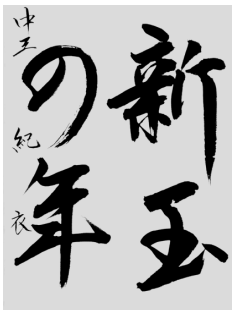 新玉
の年
中三 紀衣